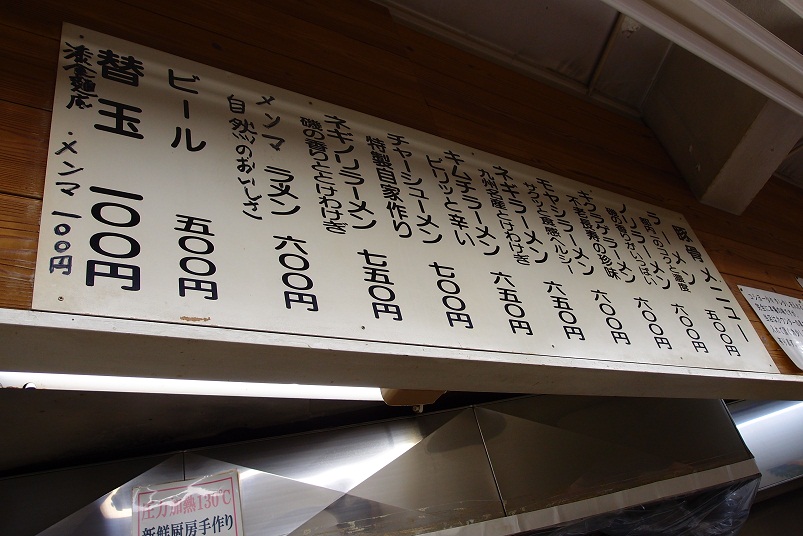 豚骨メニュー
ラーメン 五〇〇円
ノリラーメン 六〇〇円
磯の香りがいっぱい
キクラゲラーメン 六〇〇円
不老長寿の珍味
モヤシラーメン 六〇〇円
サクッと食感ヘルシー
ネギラーメン 六五〇円
キムチラーメン 六五〇円
ピリッと辛い
チャーシューメン 七〇〇円
特製自家作り
ネギノリラーメン 七五〇円
磯の香りとけわけぎ
メンマ ラメン 六〇〇円
自然のおいしさ
ビール 五〇〇円
替玉 一〇〇円
・メンマ 一〇〇円
圧力加熱130℃
新鮮厨房手作り